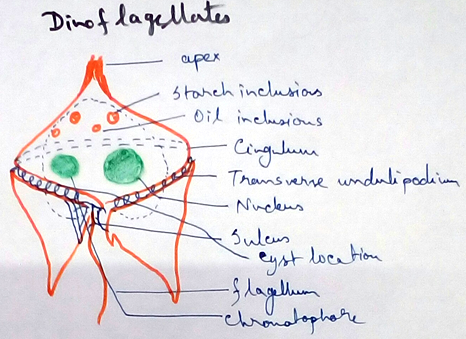 Dinoflagellates
apex
Starch inclusions
Oil inclusions
Cingulum
Transverse undulipodium
Nucleus
Sulcus
Cyst location
flagellum
Chromatophore